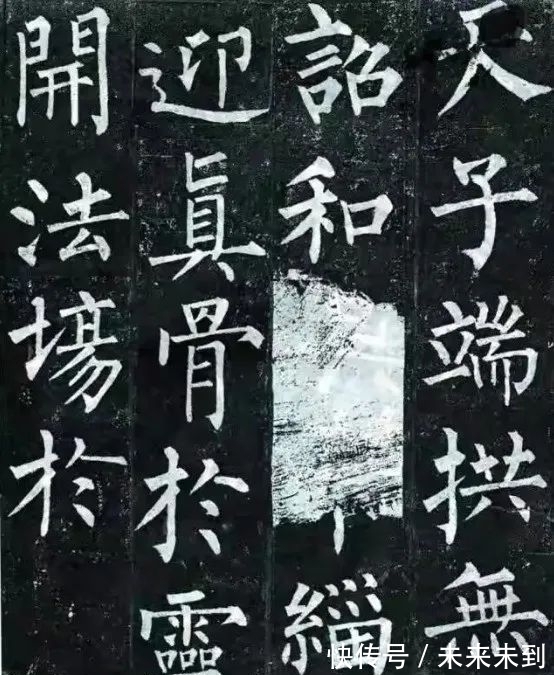 天子端拱無
詔和緇
迎真骨於靈
開法場於
快传号/未来未到